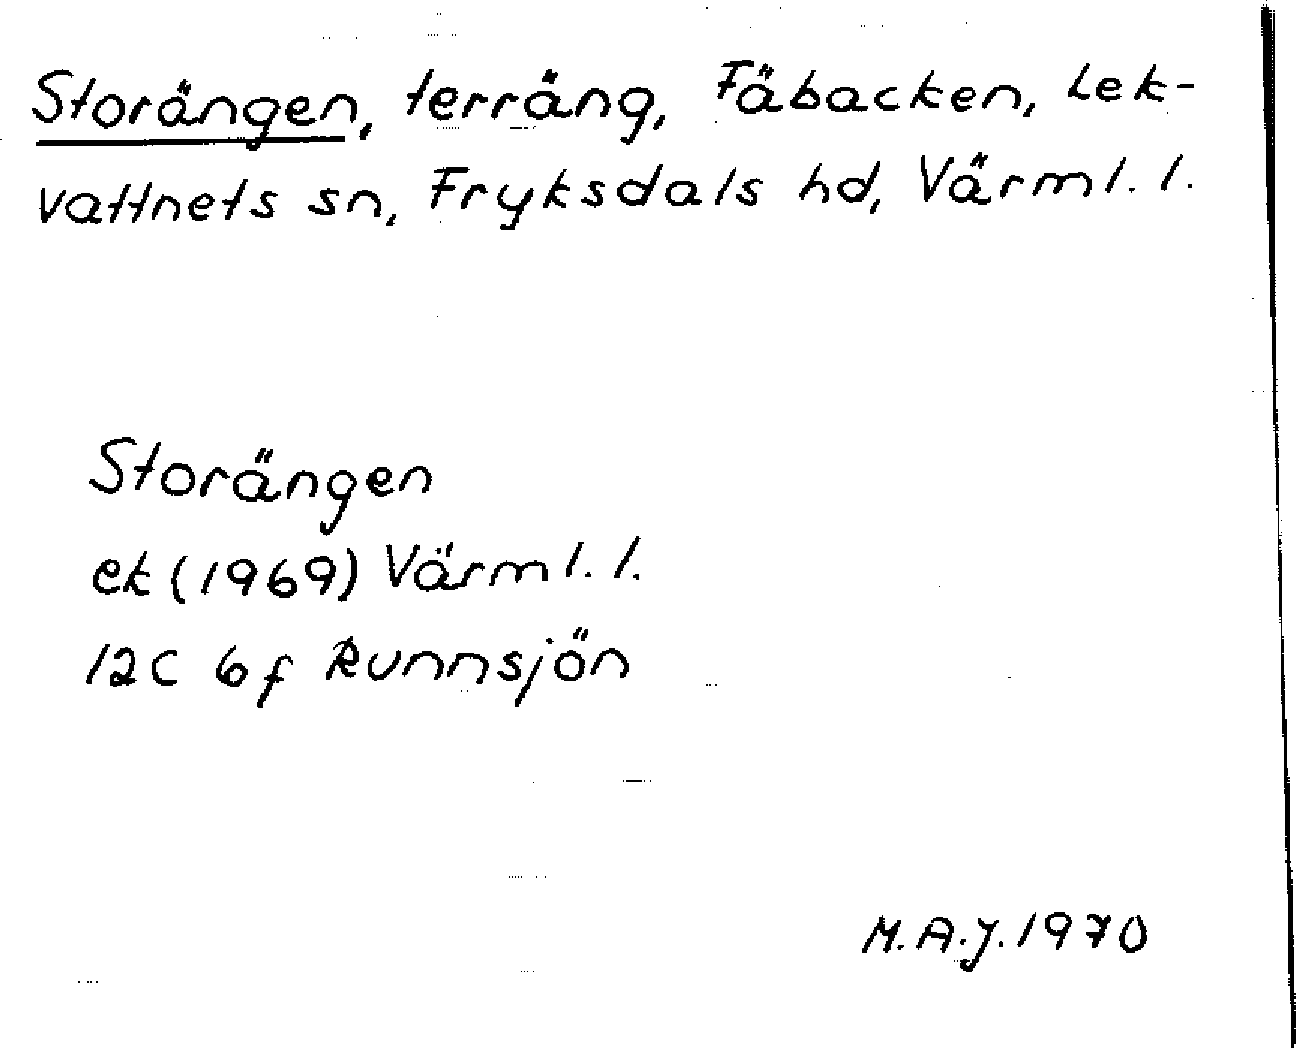 Storängen, terräng, Fäbacken, Lek-
vattnets sn, Fryksdals hd, Värml. l.
Storängen
ek (1969) Värml. l.
12C 6f Runnsjön
M.A.J. 1970